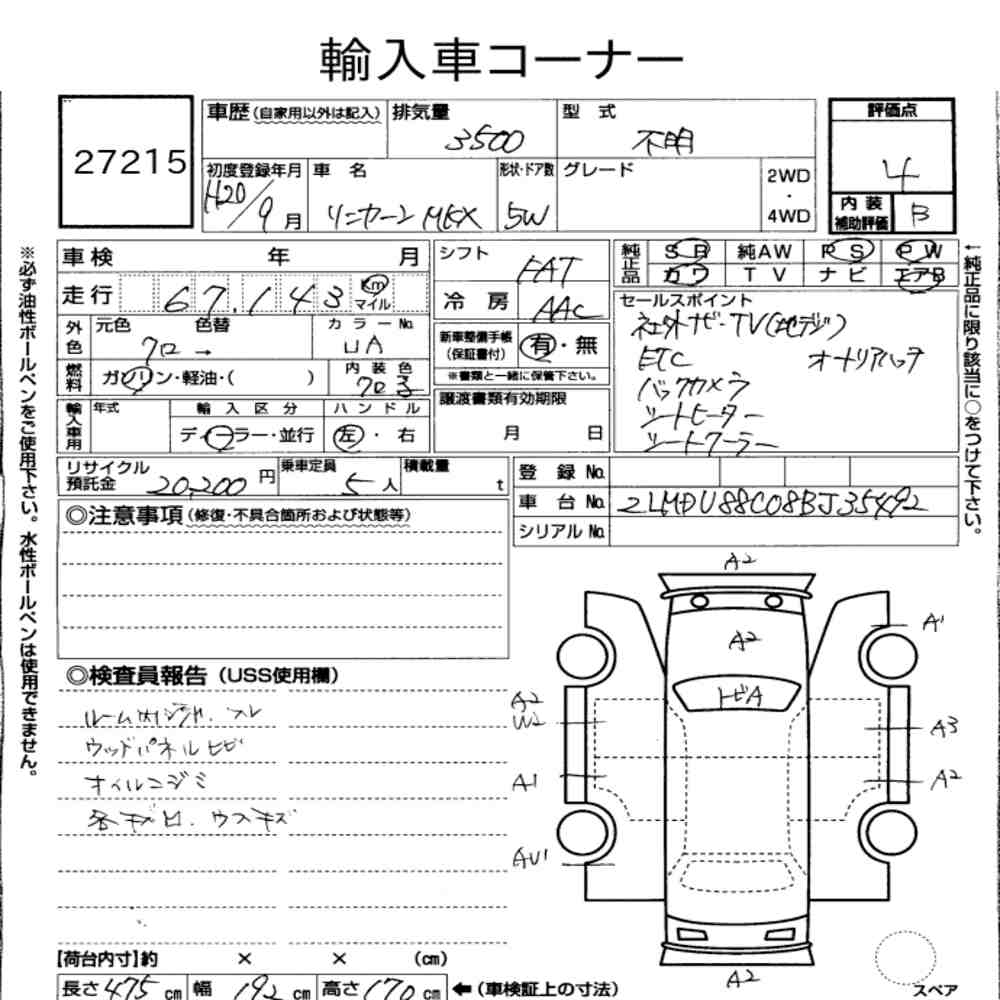 輸入車コーナー
27215
車歴(自家用以外は記入)
排気量
3500
型 式
不明
評価点
4
初度登録年月
H20/9月
車 名
リンカーン MKX
形状・ドア数
5W
グレード
2WD
・
4WD
内 装
補助評価
B
※必ず油性ボールペンをご使用下さい。水性ボールペンは使用できません。
車検 年 月
シフト
FAT
純正品
SR 純AW PS PW
カワ TV ナビ エアB
←純正品に限り該当に○をつけて下さい。
走行 67,143 Km マイル
冷 房
AAC
セールスポイント
社外ナビ・TV(地デジ)
ETC オートリアハッチ
バックカメラ
シートヒーター
シートクーラー
外色
元色 色替
クロ →
カラーNo.
UA
新車整備手帳
(保証書付)
有・無
※書類と一緒に保管下さい。
燃料
ガソリン・軽油・( )
内装色
クロ
譲渡書類有効期限
月 日
輸入車用
年式
輸入区分
ディーラー・並行
ハンドル
左・右
リサイクル
預託金
20,200円
乗車定員
5人
積載量
t
登録No.
車台No. 2LMDU88C08BJ35492
シリアルNo.
◎注意事項(修復・不具合箇所および状態等)
◎検査員報告(USS使用欄)
ウッドパネルヒビ
オイルニジミ
A2
A2
トビA
A1
A2
W2
A3
A1
A2
AU1
A2
【荷台内寸】約 × × (cm)
長さ475cm 幅192cm 高さ170cm ←(車検証上の寸法)
スペア